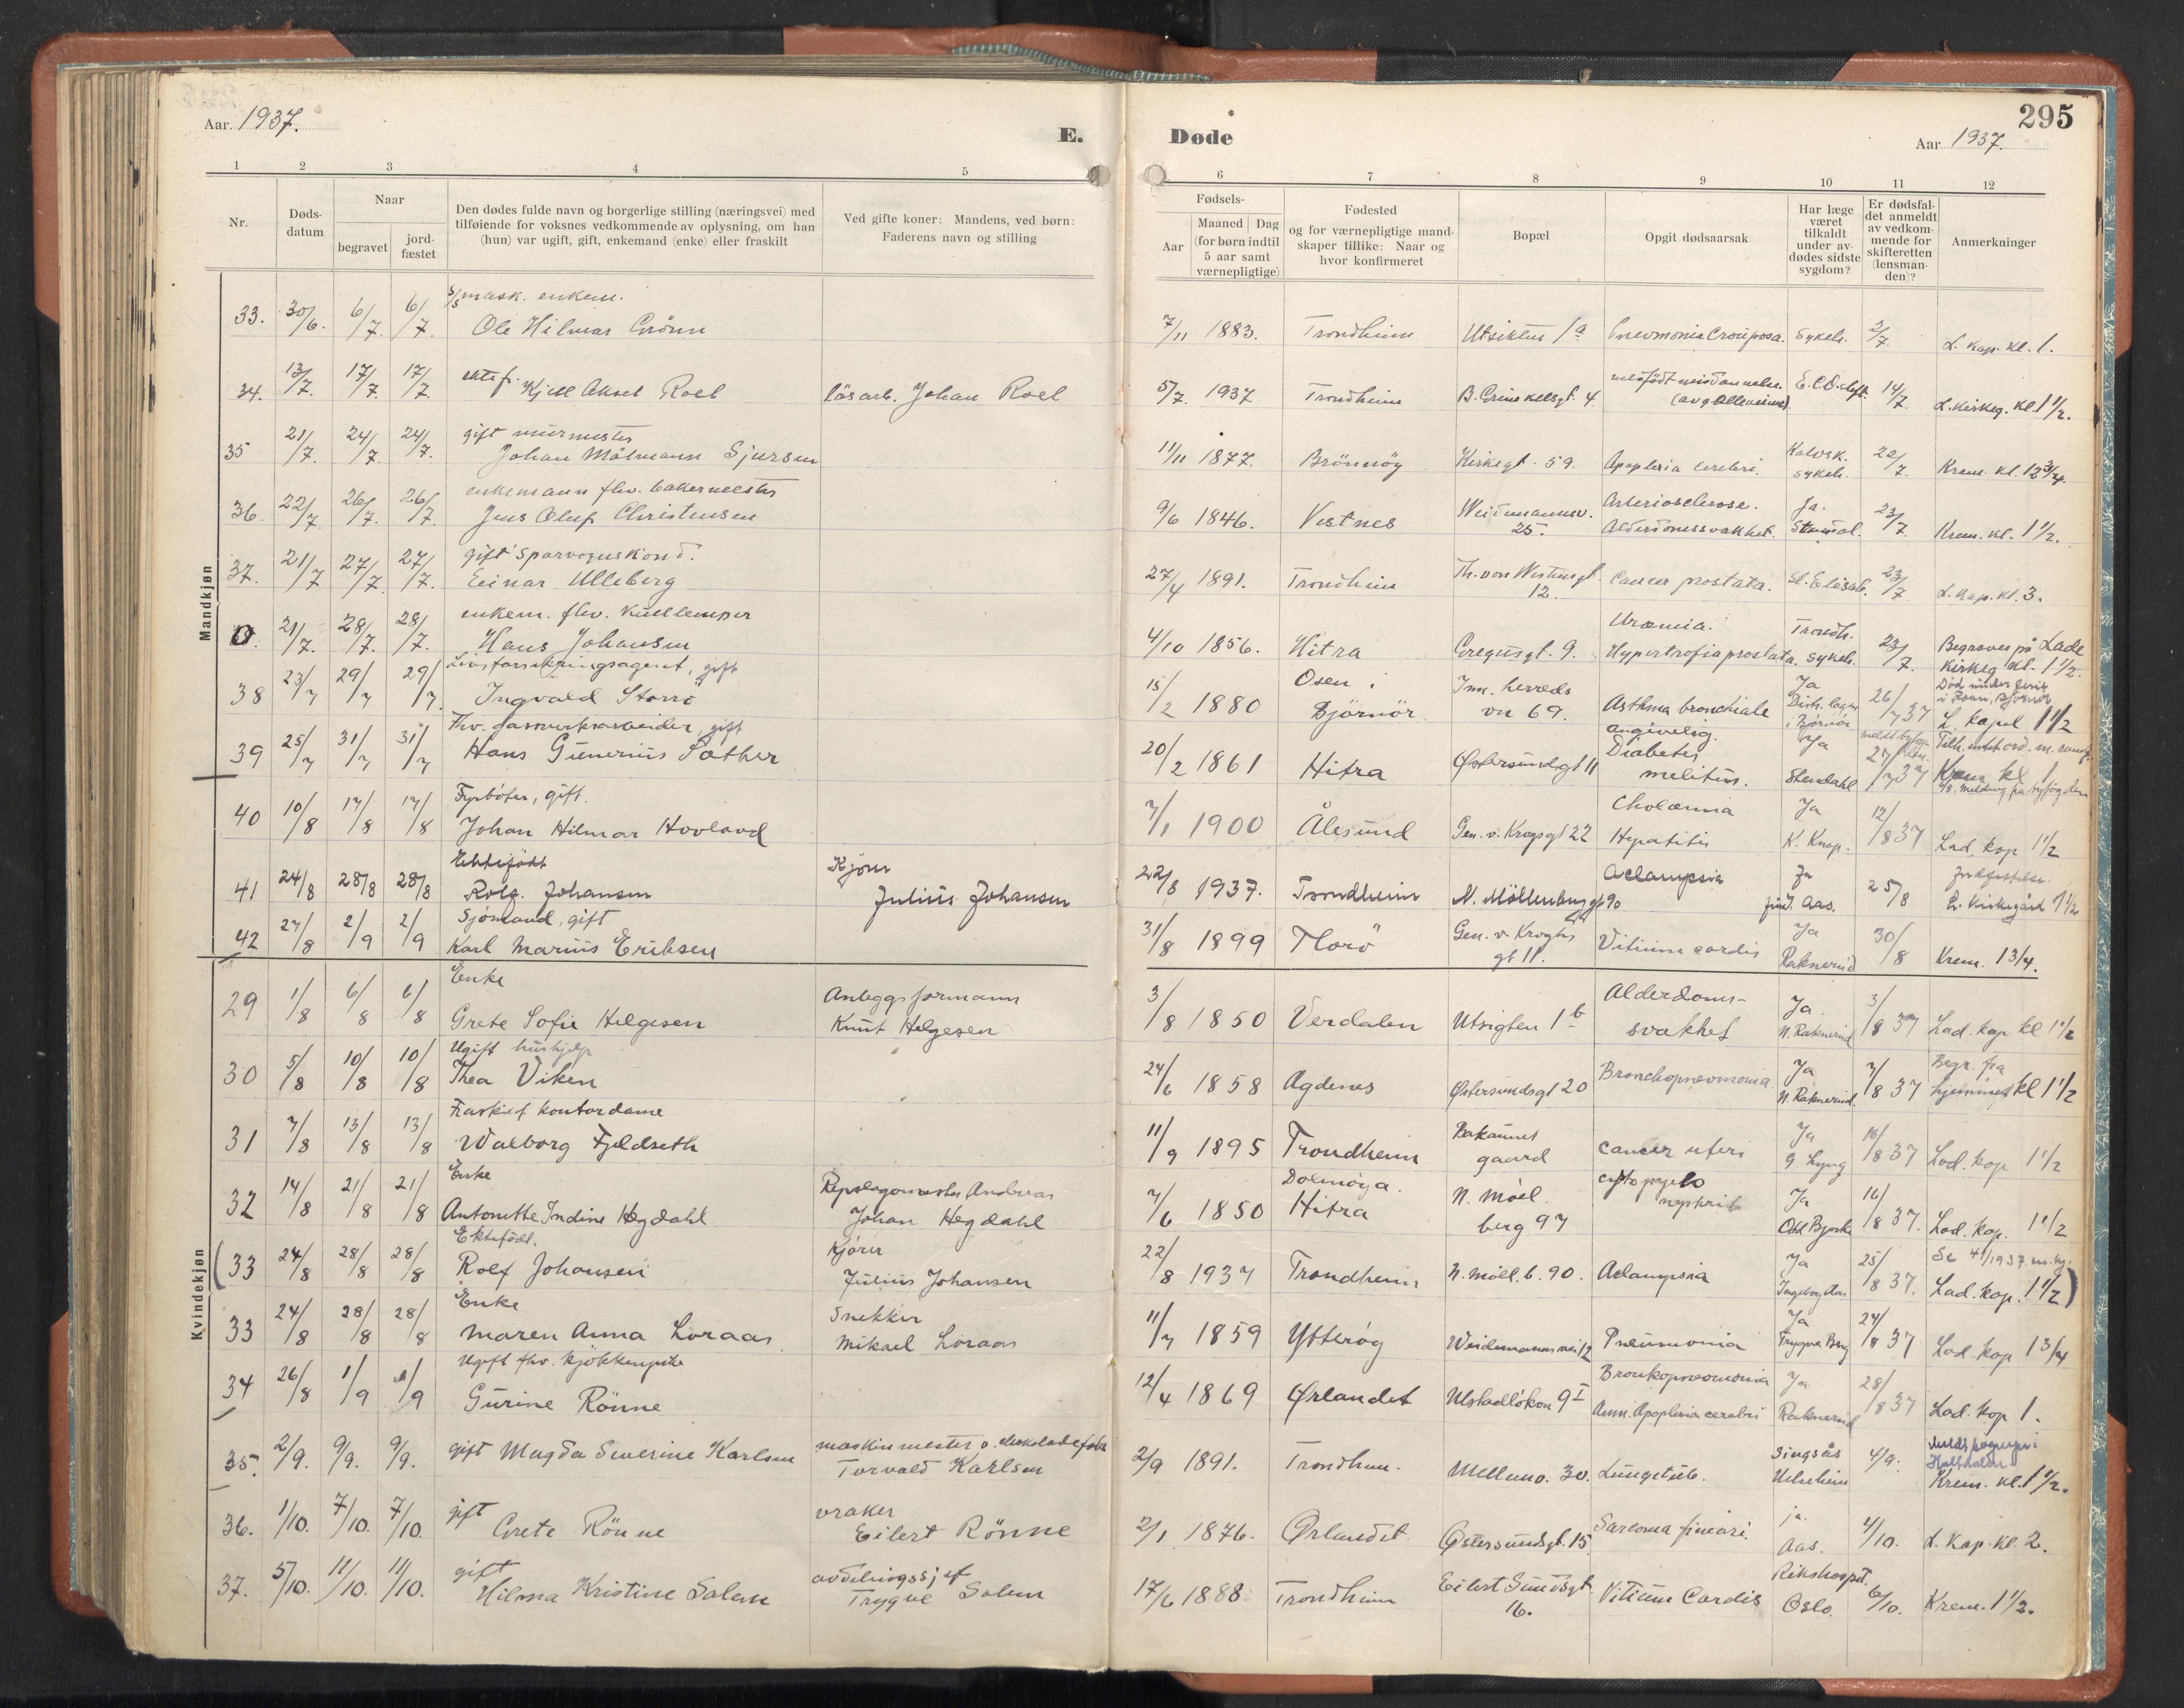 Aar 1937.
E.
Døde
295
Aar 1937.
1 2 3 4 5 6 7 8 9 10 11 12
Nr.
Døds-
datum
Naar
begravet
jord-
fæstet
Den dødes fulde navn og borgerlige stilling (næringsvei) med
tilføiende for voksnes vedkommende av oplysning, om han
(hun) var ugift, gift, enkemand (enke) eller fraskilt
Ved gifte koner: Mandens, ved børn:
Faderens navn og stilling
Fødsels-
Aar
Maaned Dag
(for børn indtil
5 aar samt
værnepligtige)
Fødested
og for værnepligtige mand-
skaper tillike: Naar og
hvor konfirmeret
Bopæl
Opgit dødsaarsak
Har læge
været
tilkaldt
under av-
dødes sidste
sygdom?
Er dødsfal-
det anmeldt
av vedkom-
mende for
skifteretten
(lensman-
den)?
Anmerkninger
Mandkjøn
mask. enkem.
33. 30/6. 6/7. 6/7. Ole Hilmar Grönn 7/11 1883. Trondheim Utsikten 1a Pneumonia Crouposa. Sykeh. 2/7. L. Kap. kl. 1.
ektef.
34. 13/7. 17/7. 17/7. Kjell Aksel Roel løsarb. Johan Roel 5/7. 1937 Trondheim 14/7. L. Kirkeg. kl. 1 1/2.
gift murmester
35 21/7. 24/7. 24/7. Johan Målmann Sjursen 11/11 1877. Brönnöy Kirkegt. 59. Apoplexia cerebri. sykeh. 22/7. Krem. kl. 12 3/4.
enkemann fhv. bakermester
36. 22/7. 26/7. 26/7. Jens Oluf Christensen 9/6 1846. Vestnes Weidemannsv. 25. Arteriosclerose. Alderdomssvakhet. Ja. Stendal. 23/7. Krem. kl. 1 1/2.
gift sporvognskond.
37. 21/7 27/7. 27/7. Einar Ulleberg 27/4 1891. Trondheim Th. von Westensgt. 12. Cancer prostata. St. Elisab. 23/7 L. Kap. kl. 3.
enkem. fhv. kullemper
0. 21/7. 28/7. 28/7. Hans Johansen 4/10 1856. Hitra Gregusgt. 9. Uræmia. Hypertrofia prostata. Trondh. sykeh. 23/7. Begraves på Lade Kirkeg. kl. 1 1/2.
Livsforsikringsagent, gift
38 23/7 29/7 29/7. Ingvald Storrö 15/2 1880 Osen i Björnör. Inn. herreds vn 69. Asthma bronchiale angivelig. Ja Distr. lægen i Bjørnör 26/7 37 L. kapel 1 1/2
Fhv. gassverksarbeider, gift
39 25/7 31/7 31/7 Hans Gunerius Sæther 20/2 1861 Hitra Østersundgt 11 Diabetes melitus. Ja Stendahl 27/7 37 Krem. kl 1
Fyrböter, gift.
40 10/8 17/8 17/8 Johan Hilmar Hovland 7/1 1900 Ålesund Gen. v. Krogsgt 22 Cholæmia Hepatitis Ja K. Knap. 12/8 37 Lad. kap 1 1/2
Ektefödt Kjörer
41 24/8 28/8 28/8 Rolf. Johansen Julius Johansen 22/8 1937. Trondheim N. Möllenberggt 90 Aclampsia Ja Aas. 25/8 L. Kirkegård 1 1/2
Sjömand, gift
42 27/8 2/9 2/9 Karl Marius Eriksen 31/8 1899 Florö Gen. v. Kroghs gt 11. Vitium cordis Ja Raknerud 30/8 Krem. 1 3/4.
Kvindekjøn
Enke Anleggsformann
29 1/8 6/8 6/8 Grete Sofie Helgesen Knut Helgesen 3/8 1850 Verdalen Utsigten 1b Alderdoms-svakhet Ja. N. Raknerud 3/8 37 Lad. kap kl 1 1/2
Ugift hushjelp
30 5/8 10/8 10/8 Thea Viken 24/6 1858 Agdenes Østersundsgt 20 Bronchopneumonia Ja N. Raknerud. 7/8 37 Begr. fra hjemmet kl 1 1/2
Fraskilt kontordame
31 7/8 13/8 13/8 Walborg Fjeldseth 11/9 1895 Trondheim Bakaunet gaard cancer uteri Ja G. Lyng 10/8 37 Lad. kap 1 1/2
Enke Repslagermester Andreas
32 14/8 21/8 21/8 Antonette Indine Hegdahl Johan Hegdahl 7/6 1850 Dolmöya. Hitra N. Möll. berg 97 cystopyelo nephrit Ja Odd Bjorke 16/8 37. Lad. kap. 1 1/2
Ektefödt. Kjörer
(33 24/8 28/8 28/8 Rolf Johansen Julius Johansen 22/8 1937 Trondheim N. möll. b. 90. Aclampsia Ja Ingeborg Aas 25/8 37. Se 41/1937. m.kj. Lad. kap. 1 1/2)
Enke Snekker
33 24/8 28/8 28/8 Maren Anna Loraas Mikael Loraas 11/7 1859 Ytteröy Weidemannsvei 12 Pneumonia Ja Trygve Berg 24/8 37 Lad. kap 1 3/4
Ugift fhv. kjökkenpike
34 26/8 1/9 1/9 Gurine Rönne 12/4 1869 Ørlandet Ulstadlökken 9 I Bronkopneomonia Apoplexia cerebri Ja Raknerud 28/8 37 Lad. kap 1.
maskinmester v. chokoladefabr
35. 2/9. 9/9. 9/9. gift Magda Severine Karlsen Torvald Karlsen 2/9 1891. Trondhm. Mellemv. 30. Lungetub. Singsås Helseheim 4/9. Krem. kl. 1 1/2.
gift vraker
36. 1/10. 7/10. 7/10. Grete Rönne Eilert Rönne 2/1 1876. Ørlandet Østersundsgt. 15. Sarcoma ja. Aas. 4/10. L. Kap. kl. 2.
gift avdelingssjef
37. 5/10. 11/10. 11/10. Hilma Kristine Solem Trygve Solem 17/6 1888. Trondheim Eilert Sundsgt. 16. Vitium Cordis Rikshospit. Oslo. 6/10. Krem. 1 1/2.